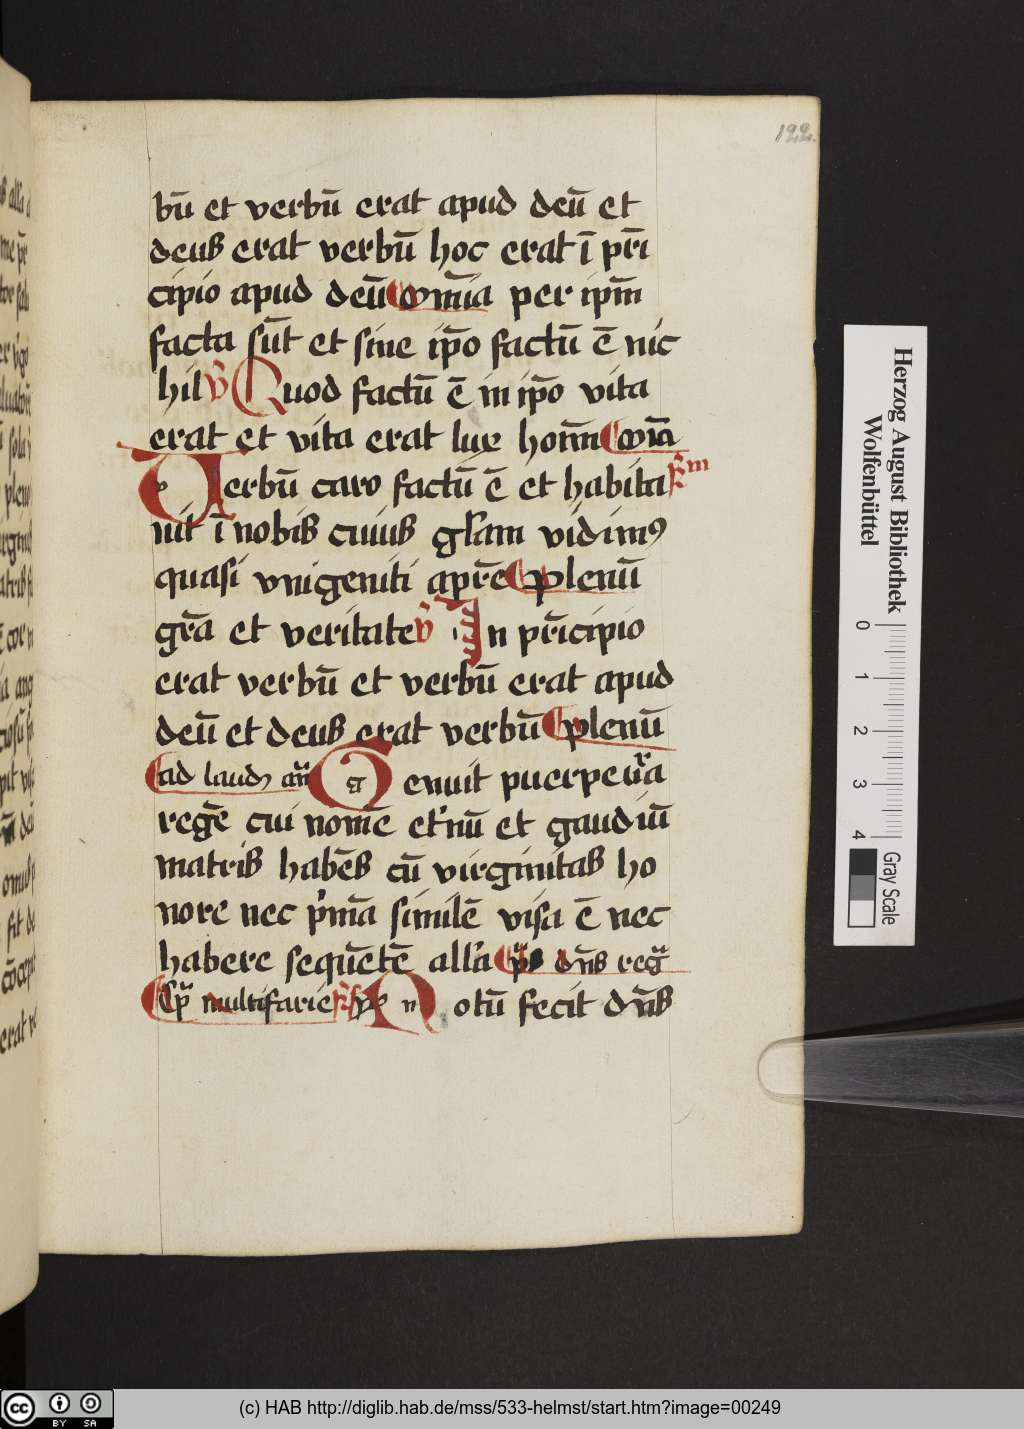 122.
bū et verbū erat apud deū et
deus erat verbū hoc erat ī prī
cipio apud deū omīa per ipm̄
facta sūt et sine ip̄o factū ē nic
hil v̄ Quod factū ē in ip̄o vita
erat et vita erat lux homī omīa
Verbū caro factū ē et habita
uit ī nobis cuius glām vidimꝰ
quasi vnigeniti a pr̄e plenū
gr̄a et veritate v̄ In pr̄icipio
erat verbū et verbū erat apud
deū et deus erat verbū plenū
ad laudꝫ an̄ Genuit puerpera
regē cui nomē et̓nū et gaudiū
matris habēs cū virginitas ho
nore nec p̓mā similē visa ē nec
habere sequētē all̓a p̄s dn̄s reḡ
Cp̄ multifarie Notū fecit dn̄s
Herzog August Bibliothek
Wolfenbüttel
0 1 2 3 4
Gray Scale
cc BY SA
(c) HAB http://diglib.hab.de/mss/533-helmst/start.htm?image=00249